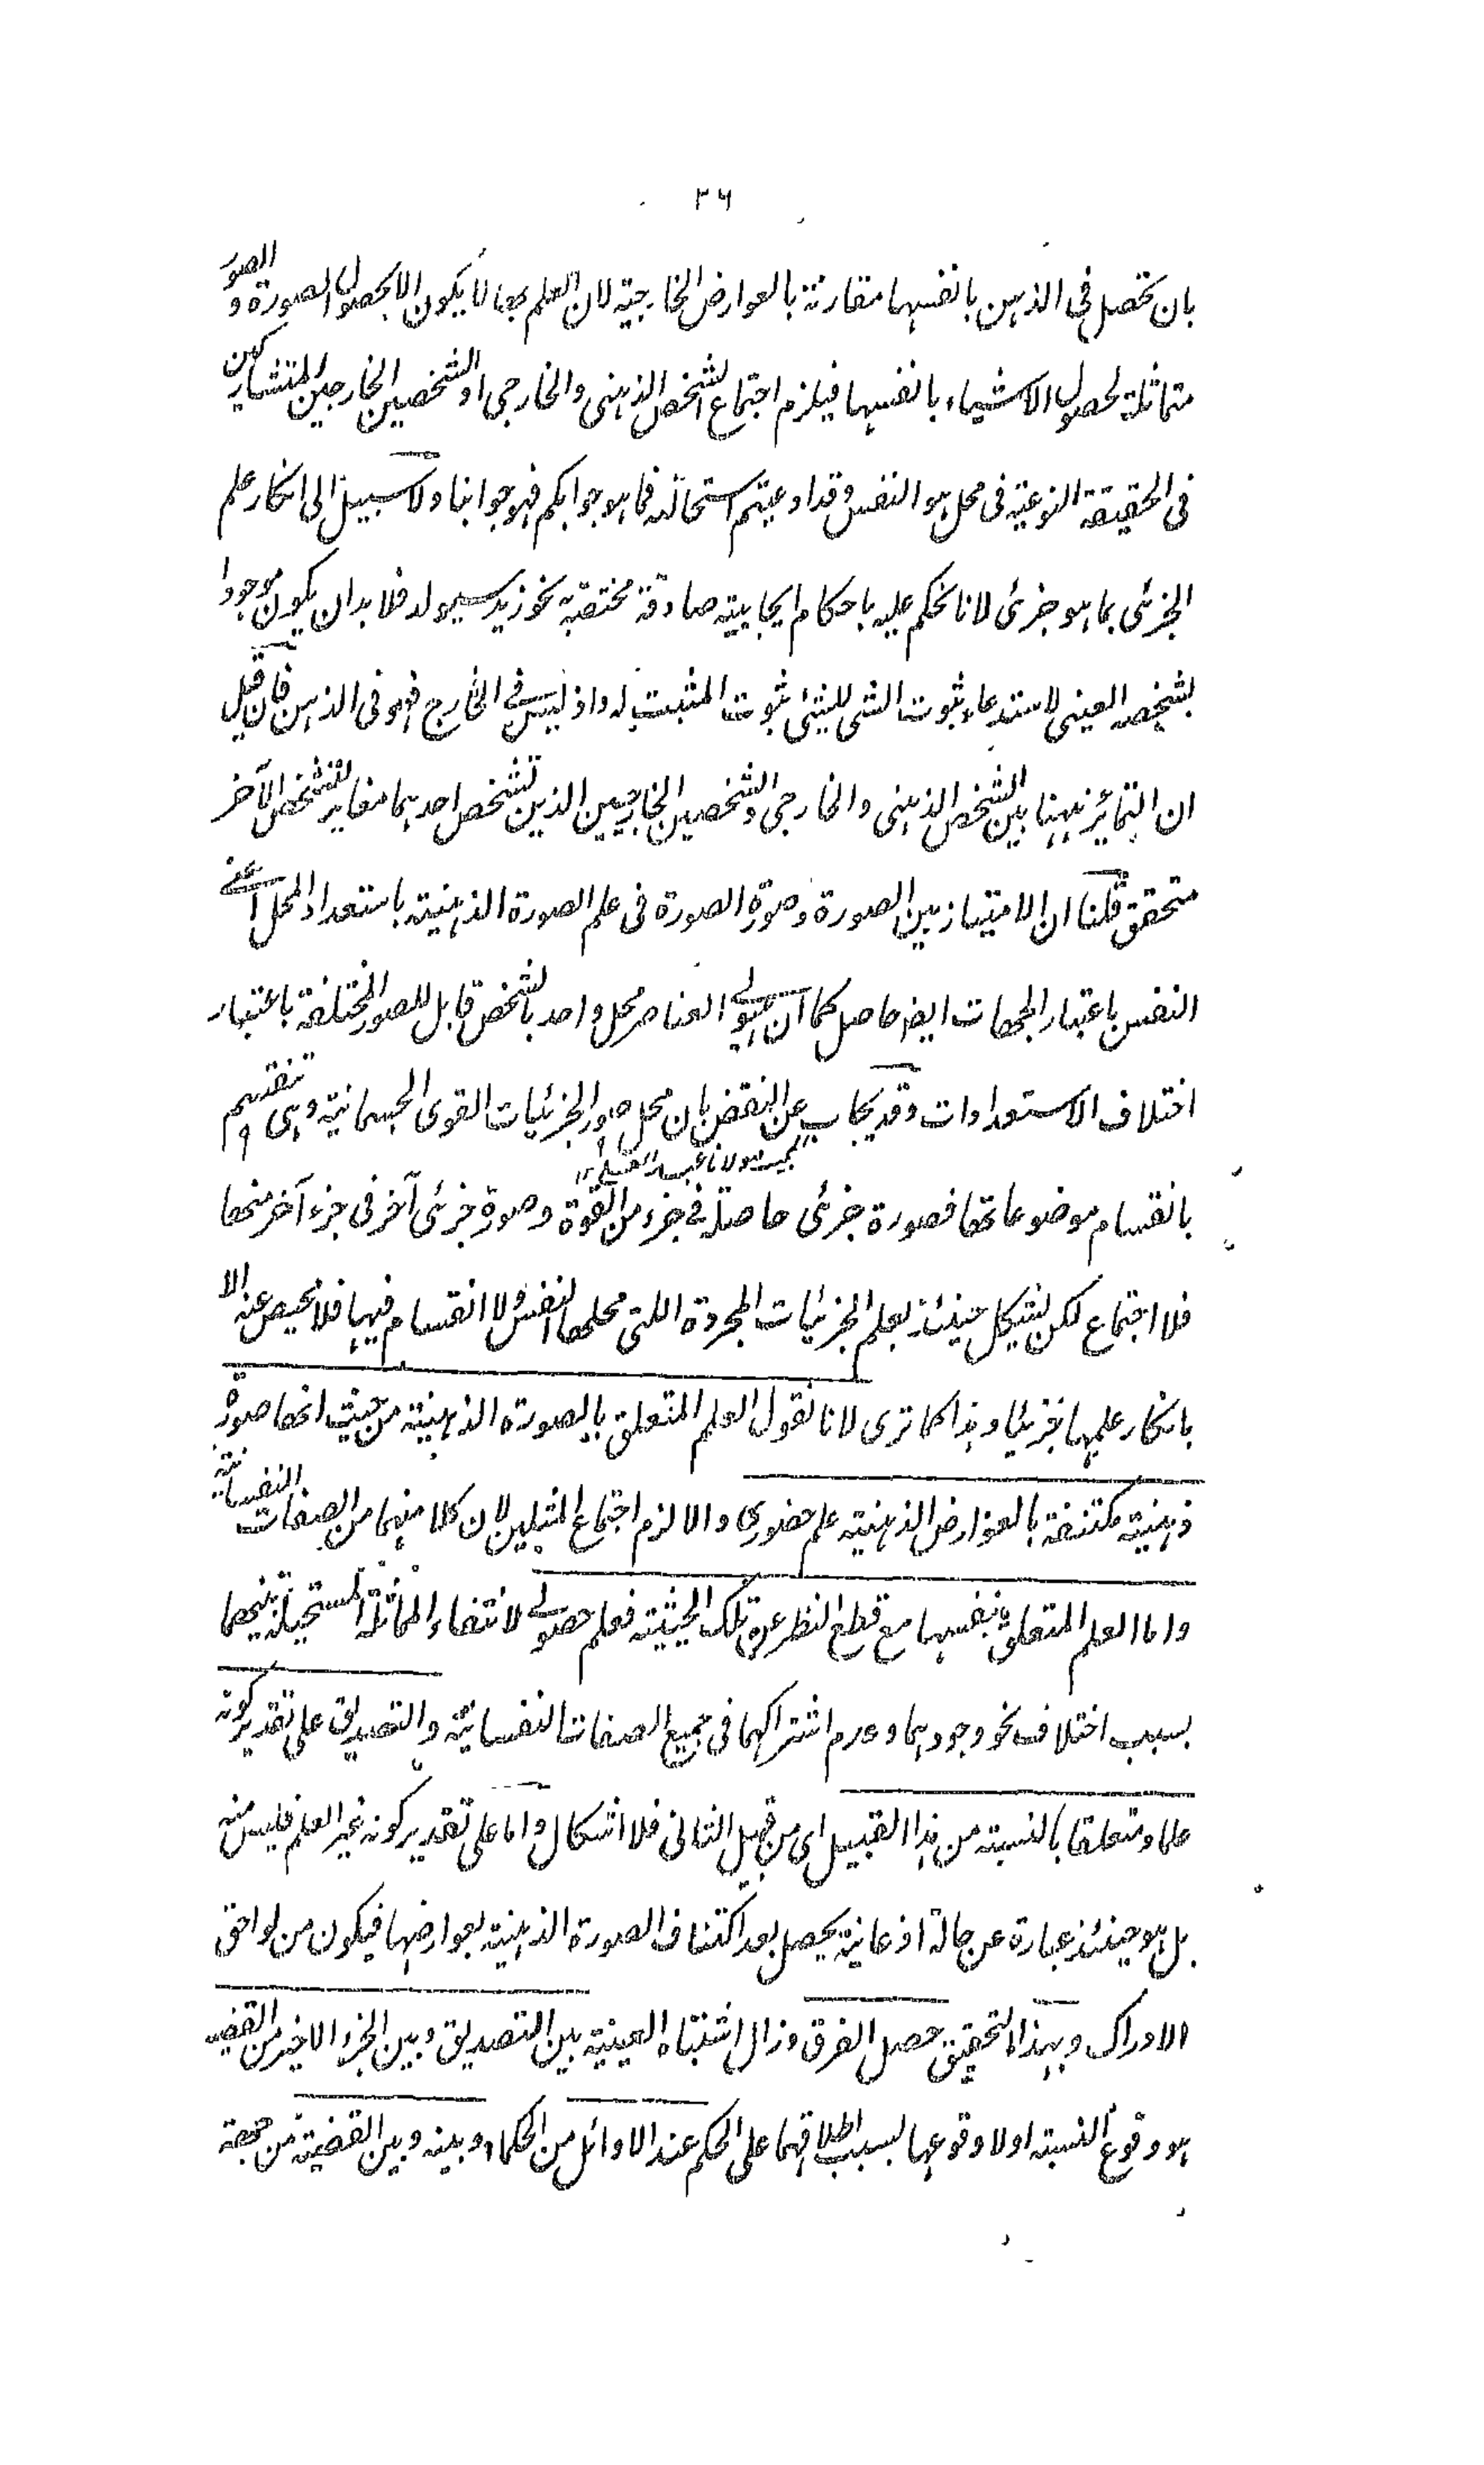 ٣٦
بان تحصل فى الذهن بانفسها مقارنة بالعوارض الخارجية لان العلم بها لا يكون الا بحصول الصورة و الصور
متماثلة لحصول الاشياء بانفسها فيلزم اجتماع الشخص الذهنى والخارجى او الشخصين الخارجين المتشاركين
فى الحقيقة النوعية فى محل هو النفس وقد ادعيتم استحالته فما هو جوابكم فهو جوابنا ولا سبيل الى انكار علم
الجزئى بما هو جزئى لانا نحكم عليه باحكام ايجابية صادقة مختصة به نحو زيد سيولد فلا بد ان يكون موجودا
بشخصه العينى لاستدعاء ثبوت الشئ للشئ ثبوت المثبت له واذ ليس فى الخارج فهو فى الذهن فان قيل
ان التمائز ههنا بين الشخص الذهنى والخارجى والشخصين الخارجيين الذين تشخص احدهما مغاير لتشخص الآخر
متحقق قلنا ان الامتياز بين الصورة وصورة الصورة فى علم الصورة الذهنية باستعداد المحل اعنى
النفس باعتبار الجهات ايضا حاصل كما ان هيولى العناصر محل واحد بالشخص قابل للصور المختلفة باعتبار
اختلاف الاستعدادات وقد يجاب عن النقض بان محل صور الجزئيات القوى الجسمانية وهى تنقسم
المجيب مولانا عبد العلى
بانقسام موضوعاتها فصورة جزئى حاصلة فى جزء من القوة وصورة جزئى آخر فى جزء آخر منها
فلا اجتماع لكن يشكل حينئذ بعلم الجزئيات المجردة اللتى محلها النفس ولا انقسام فيها فلا محيص عنه الا
بانكار علمها جزئيا وهذا كما ترى لانا نقول العلم المتعلق بالصورة الذهنية من حيث انها صورة
ذهنية مكتنفة بالعوارض الذهنية علم حضورى والا لزم اجتماع المثلين لان كلا منهما من الصفات النفسانية
واما العلم المتعلق بنفسها مع قطع النظر عن تلك الحيثية فعلم حصولى لانتفاء المماثلة المستحيلة بينهما
بسبب اختلاف نحو وجودهما وعدم اشتراكهما فى جميع الصفات النفسانية والتصديق على تقدير كونه
علما ومتعلقا بالنسبة من هذا القبيل اى من قبيل الثانى فلا اشكال واما على تقدير كونه غير العلم فليس منه
بل هو حينئذ عبارة عن حالة اذعانية يحصل بعد اكتناف الصورة الذهنية بعوارضها فيكون من لواحق
الادراك وبهذا التحقيق حصل الفرق وزال اشتباه العينية بين التصديق وبين الجزء الاخير من القضية
هو وقوع النسبة او لا وقوعها بسبب اطلاقهما على الحكم عند الاوائل من الحكماء وبينه وبين القضية من جهة